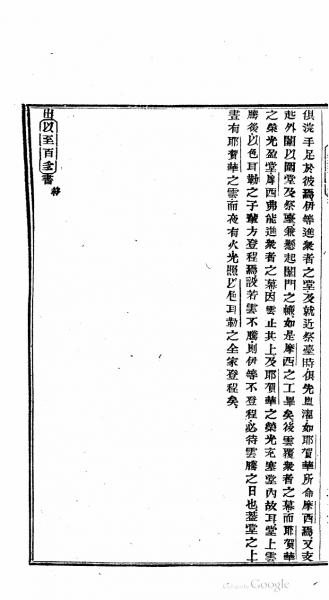 俱浣手足於彼焉伊等進衆者之堂及就近祭臺時俱先盥濯如耶賀華所命摩西焉又支
起外闈以圍堂及祭臺兼懸起闈門之帳如是摩西之工畢矣後雲覆衆者之幕而耶賀華
之榮光盈堂摩西弗能進衆者之幕因雲止其上及耶賀華之榮光充塞堂內故耳堂上雲
騰後以色耳勒之子輩方登程焉設若雲不騰則伊等不登程必待雲騰之日也蓋堂之上
晝有耶賀華之雲而夜有火光照以色耳勒之全家登程矣
出以至百二書 終
Google